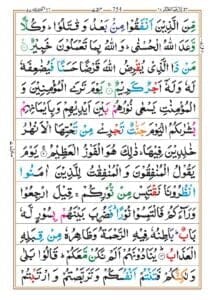 مِّنَ الَّذِيْنَ اَنْفَقُوْا مِنْۢ بَعْدُ وَقٰتَلُوْا ؕ وَكُلًّا
وَّعَدَ اللّٰهُ الْحُسْنٰى ؕ وَاللّٰهُ بِمَا تَعْمَلُوْنَ خَبِيْرٌ
مَنْ ذَا الَّذِيْ يُقْرِضُ اللّٰهَ قَرْضًا حَسَنًا فَيُضٰعِفَهٗ
لَهٗ وَلَهٗۤ اَجْرٌ كَرِيْمٌ يَوْمَ تَرَى الْمُؤْمِنِيْنَ
وَالْمُؤْمِنٰتِ يَسْعٰى نُوْرُهُمْ بَيْنَ اَيْدِيْهِمْ وَبِاَيْمَانِهِمْ
بُشْرٰىكُمُ الْيَوْمَ جَنّٰتٌ تَجْرِيْ مِنْ تَحْتِهَا الْاَنْهٰرُ
خٰلِدِيْنَ فِيْهَا ؕ ذٰلِكَ هُوَ الْفَوْزُ الْعَظِيْمُ يَوْمَ
يَقُوْلُ الْمُنٰفِقُوْنَ وَالْمُنٰفِقٰتُ لِلَّذِيْنَ اٰمَنُوا
انْظُرُوْنَا نَقْتَبِسْ مِنْ نُّوْرِكُمْ ۚ قِيْلَ ارْجِعُوْا
وَرَآءَكُمْ فَالْتَمِسُوْا نُوْرًا ؕ فَضُرِبَ بَيْنَهُمْ بِسُوْرٍ لَّهٗ
بَابٌ ؕ بَاطِنُهٗ فِيْهِ الرَّحْمَةُ وَظَاهِرُهٗ مِنْ قِبَلِهِ
الْعَذَابُ يُنَادُوْنَهُمْ اَلَمْ نَكُنْ مَّعَكُمْ ؕ قَالُوْا بَلٰى
وَلٰكِنَّكُمْ فَتَنْتُمْ اَنْفُسَكُمْ وَتَرَبَّصْتُمْ وَارْتَبْتُمْ